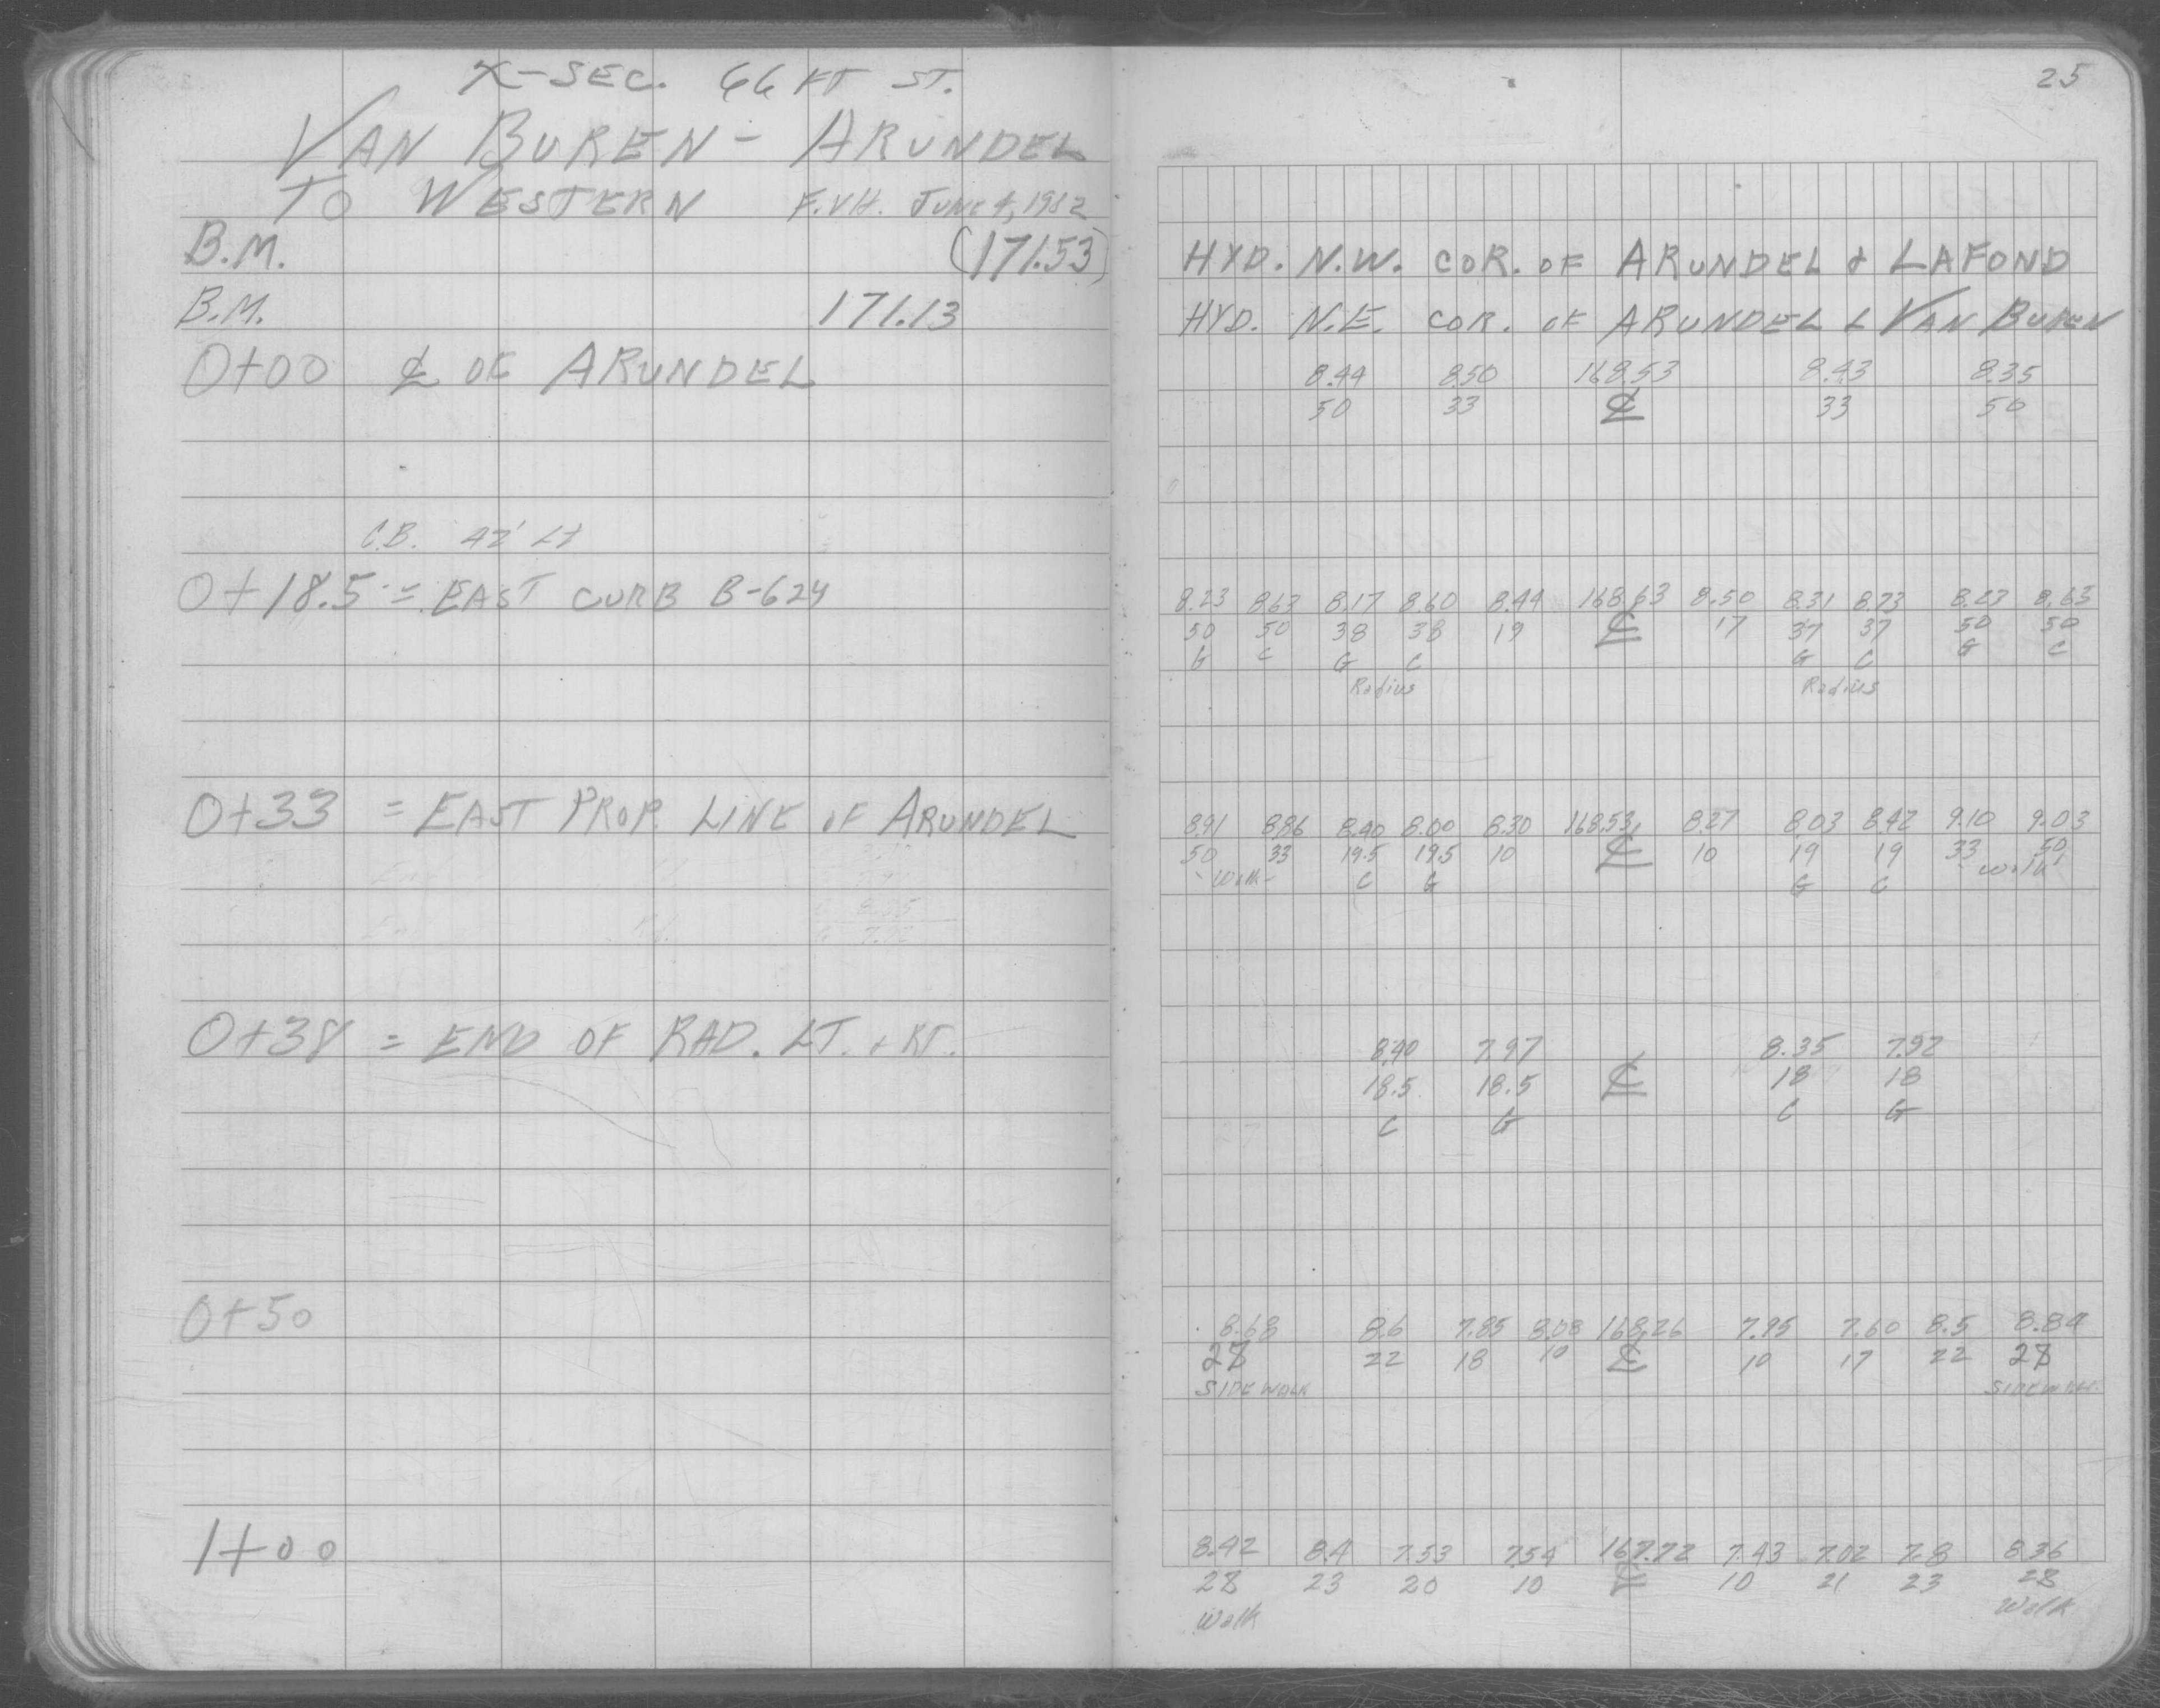 X-SEC. 66 FT ST.
VAN BUREN - ARUNDEL
TO WESTERN F.V.H. JUNE 4, 1982
B.M. (171.53)
B.M. 171.13
0+00 ℄ OF ARUNDEL
C.B. 42' Lt
0+18.5 = EAST CURB B-624
0+33 = EAST PROP. LINE OF ARUNDEL
0+38 = END OF RAD. LT. & RT.
0+50
1+00
25
HYD. N.W. COR. OF ARUNDEL & LAFOND
HYD. N.E. COR. OF ARUNDEL & VAN BUREN
8.44 8.50 168.53 8.43 8.35
50 33 ℄ 33 50
8.23 8.63 8.17 8.60 8.44 168.63 8.50 8.31 8.73 8.23 8.63
50 50 38 38 19 ℄ 17 37 37 50 50
G C G C G C G C
Radius Radius
8.91 8.86 8.40 8.00 8.30 168.53 8.27 8.03 8.42 9.10 9.03
50 33 19.5 19.5 10 ℄ 10 19 19 33 50
- Walk - C G G C Walk
8.40 7.97 8.35 7.92
18.5 18.5 ℄ 18 18
C G C G
8.68 8.6 7.85 8.08 168.26 7.95 7.60 8.5 8.84
28 22 18 10 ℄ 10 17 22 28
SIDEWALK SIDEWALK
8.42 8.4 7.53 7.54 167.72 7.43 7.02 7.8 8.36
28 23 20 10 ℄ 10 21 23 28
Walk Walk